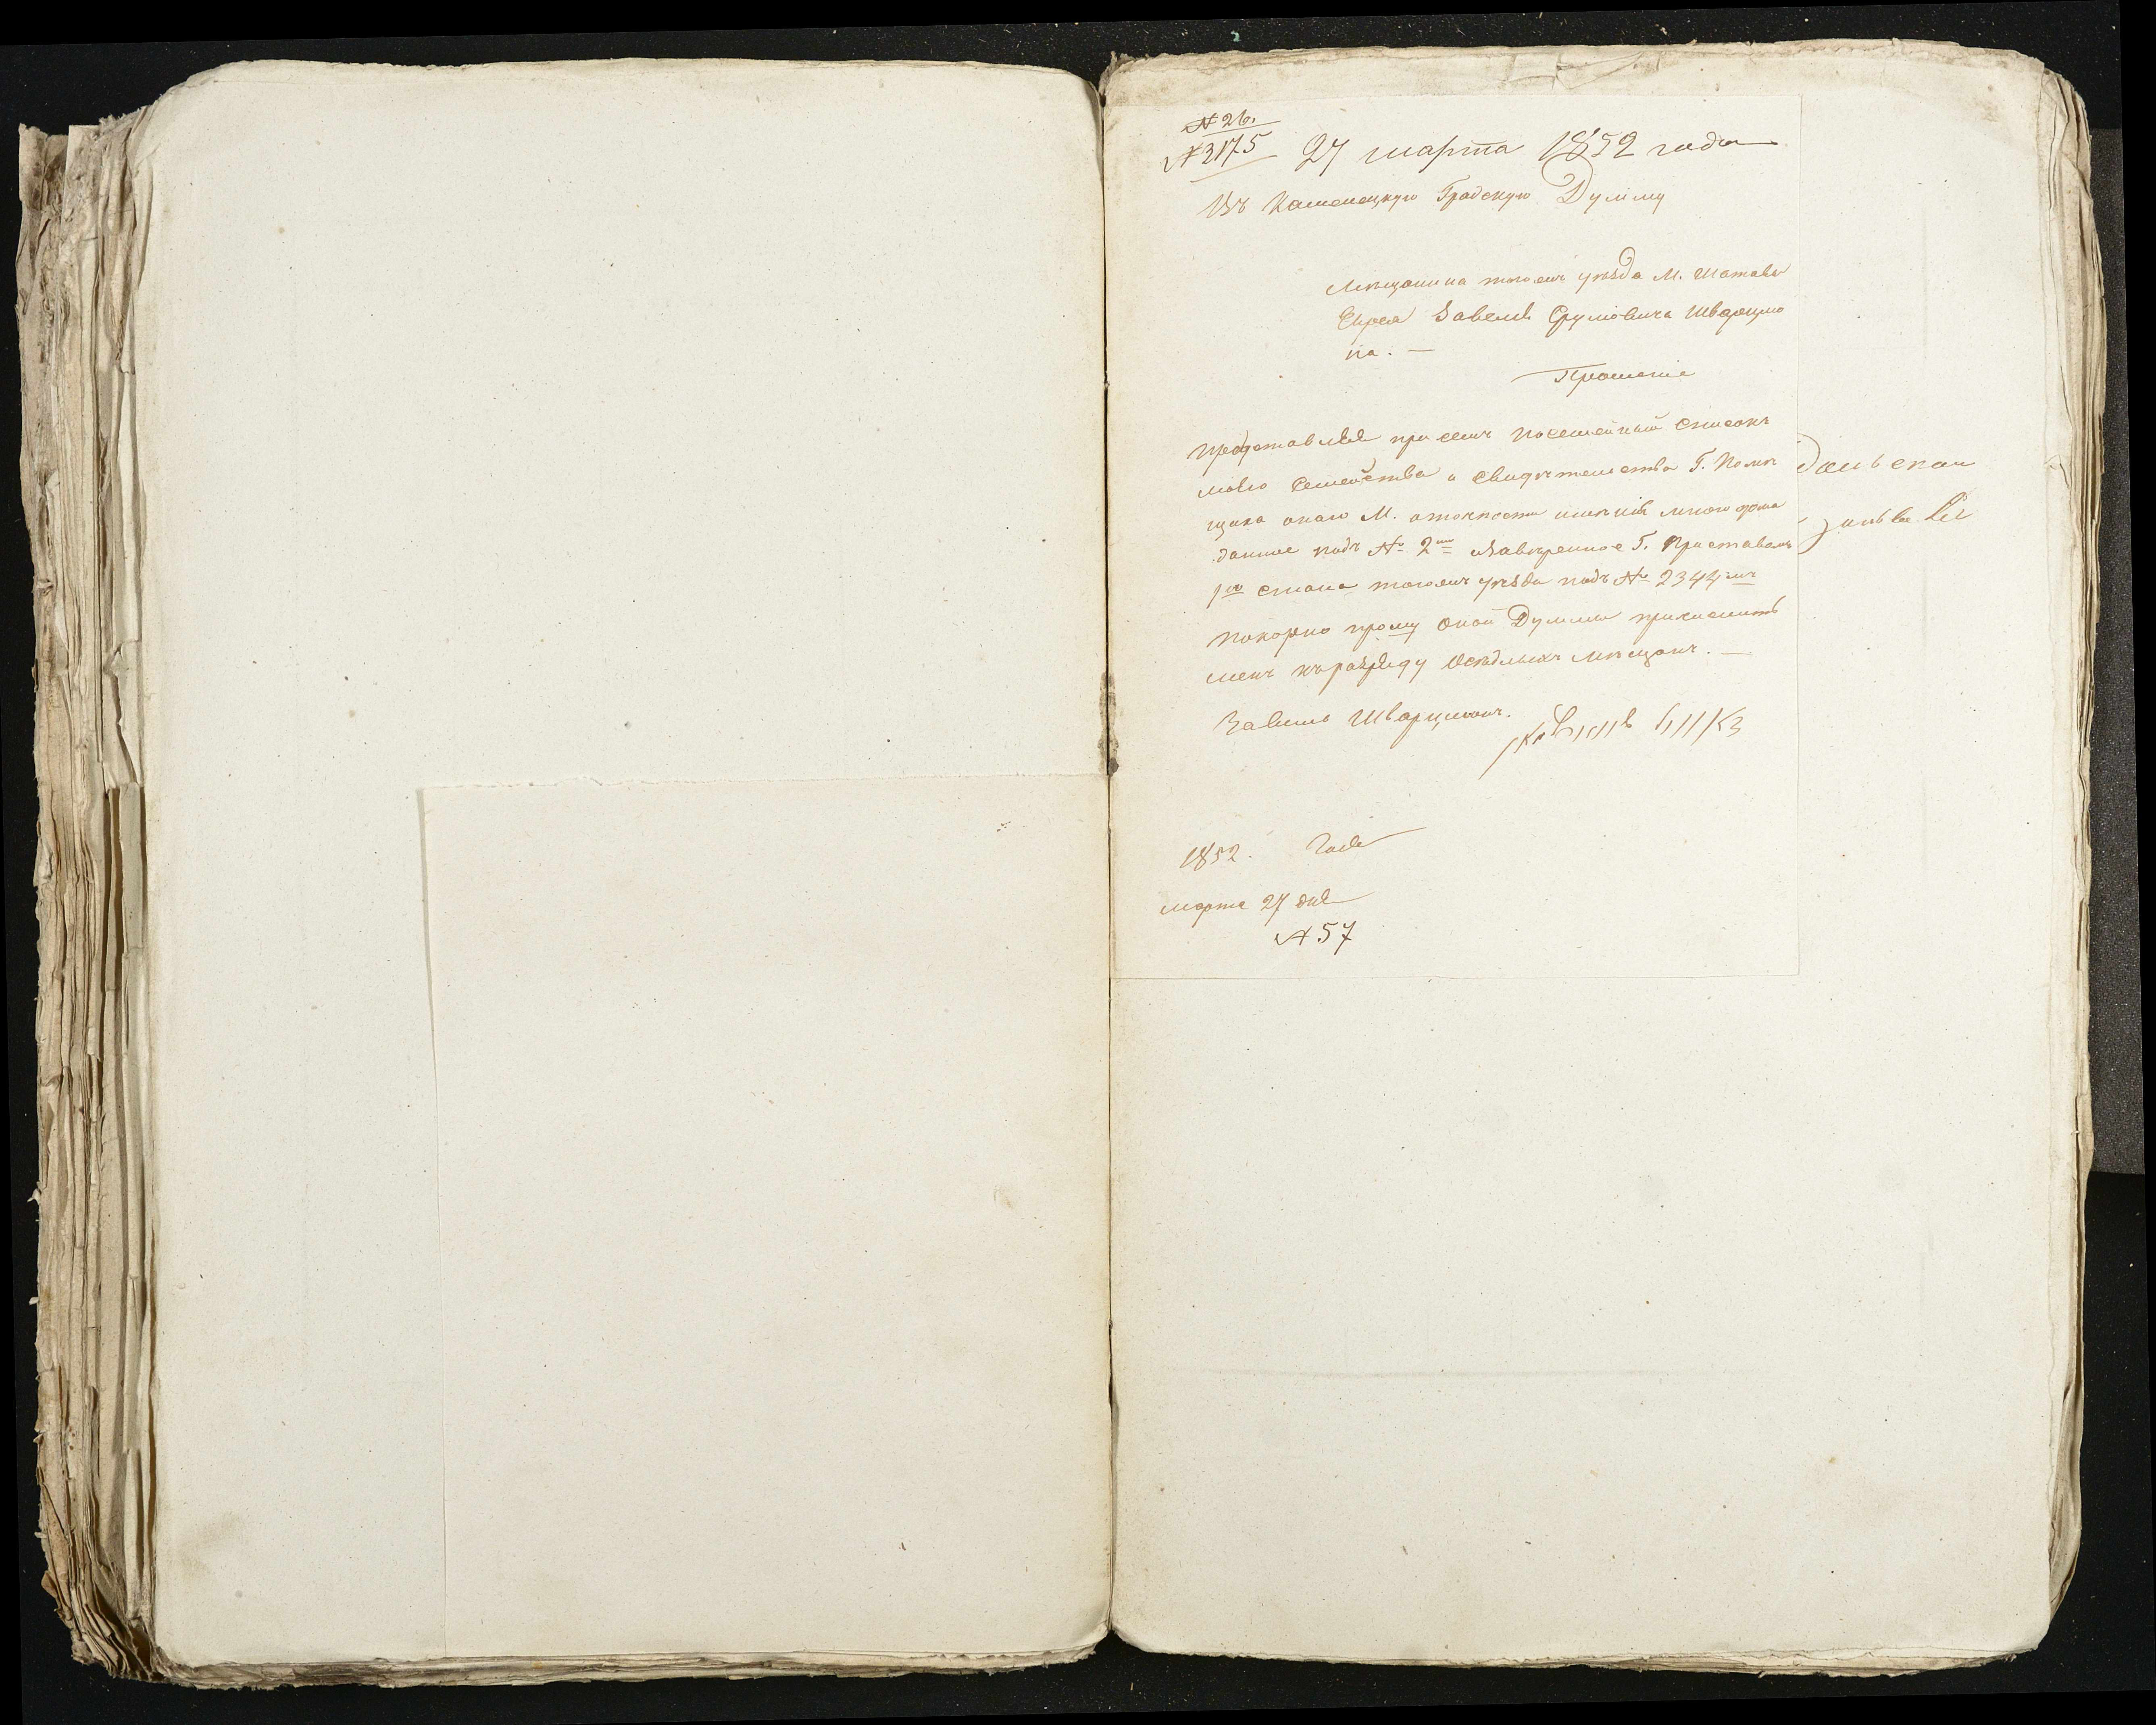 № 26.
№ 3175 27 марта 1852 года
Въ Каменецкую Градскую Думму
Мѣщанина тогожъ уѣзда М. Шатавы
Еврея Завеля Срумовича Шварцмо
на. —
Прошеніе
Представляя при семъ посемейный списокъ
моего семейства и свидѣтельства Г. Помѣ
щика оного М. имѣнія много дома
данное подъ № 2мъ Завѣренное Г. Приставомъ
1го стана тогожъ уѣзда подъ № 2344мъ
покорно прошу оной Думмы причислить
менѣ къ разряду осѣдлыхъ мѣщанъ. —
Завель Шварцманъ.
1852. Года
марта 27 дня
№ 57